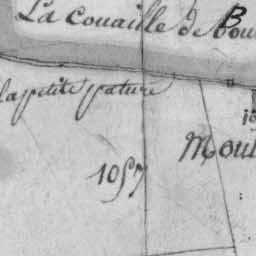 La Couaille de bou
B
la petite pature
Moul
1057